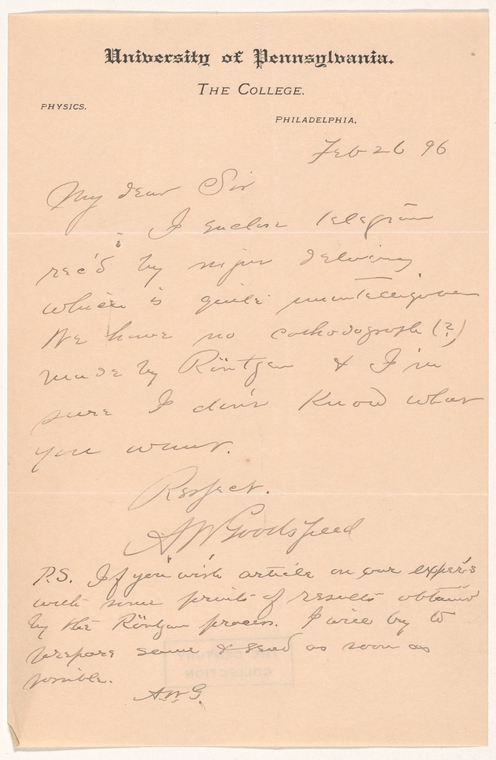 University of Pennsylvania.
THE COLLEGE.
PHYSICS.
PHILADELPHIA,
Feb 26 96
My dear Sir
I enclose telegram
rec'd by
which is quite unintelligible
We have no cathodograph (?)
made by Röntgen & I'm
sure I don't know what
you want.
Respect.
AW Goodspeed
P.S. If you wish article on our exper's
with some prints of results obtained
by the Röntgen process. I will try to
prepare same & send as soon as
possible.
A.W.G.
COLLECTION